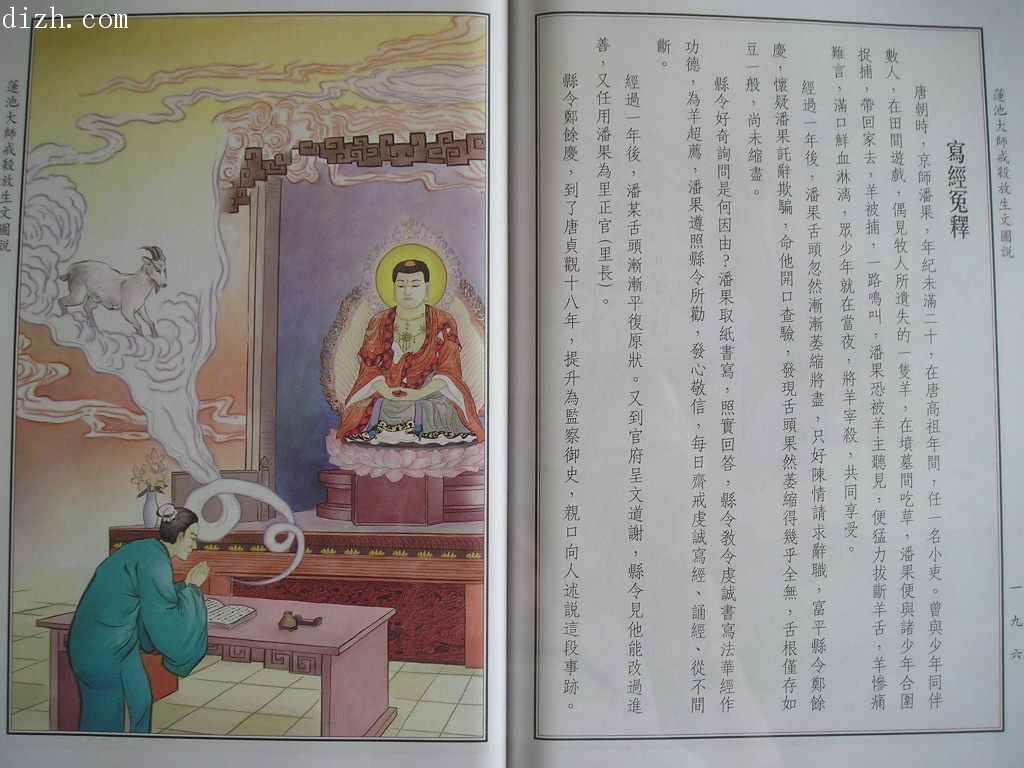 dizh.com
蓮池大師戒殺放生文圖説
寫經冤釋
唐朝時，京師潘果，年紀未滿二十，在唐高祖年間，任一名小吏。曾與少年同伴
數人，在田間遊戲，偶見牧人所遺失的一隻羊，在墳墓間吃草，潘果便與諸少年合圍
捉捕，帶回家去，羊被捕，一路鳴叫，潘果恐被羊主聽見，便猛力拔斷羊舌，羊慘痛
難言，滿口鮮血淋漓，眾少年就在當夜，將羊宰殺，共同享受。
經過一年後，潘果舌頭忽然漸漸萎縮將盡，只好陳情請求辭職，富平縣令鄭餘
慶，懷疑潘果託辭欺騙，命他開口查驗，發現舌頭果然萎縮得幾乎全無，舌根僅存如
豆一般，尚未縮盡。
縣令好奇詢問是何因由？潘果取紙書寫，照實回答，縣令教令虔誠書寫法華經作
功德，為羊超薦，潘果遵照縣令所勸，發心敬信，每日齋戒虔誠寫經、誦經、從不間
斷。
經過一年後，潘某舌頭漸漸平復原狀。又到官府呈文道謝，縣令見他能改過進
善，又任用潘果為里正官(里長)。
縣令鄭餘慶，到了唐貞觀十八年，提升為監察御史，親口向人述説這段事跡。
一九六
蓮池大師戒殺放生文圖説